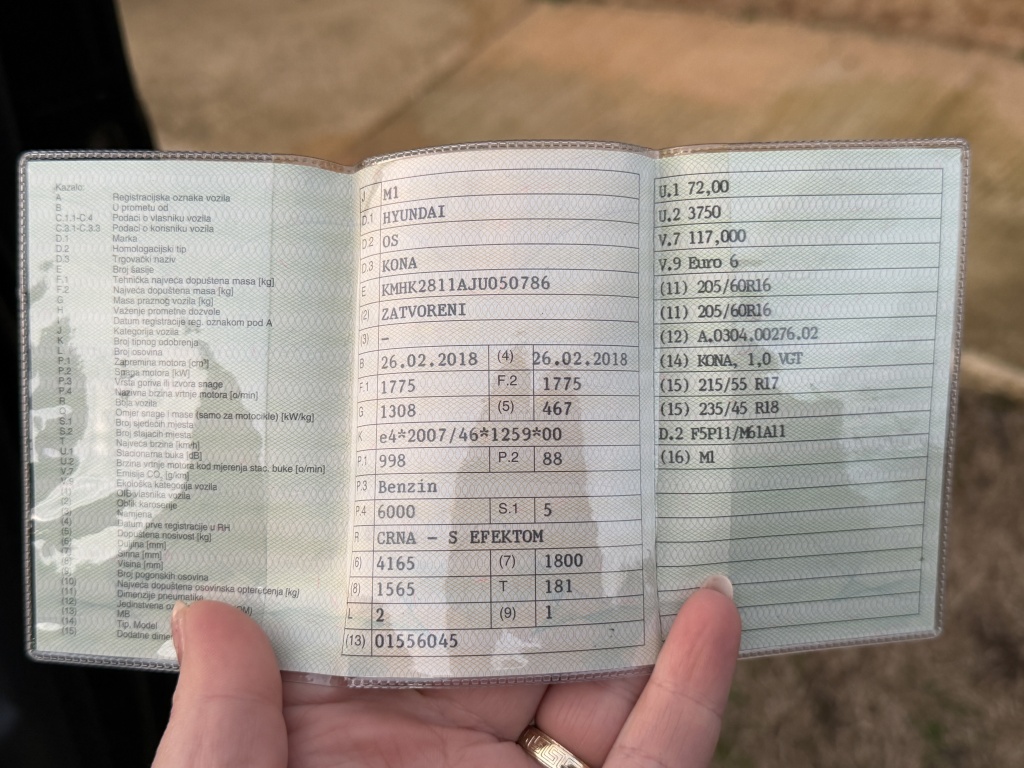 Kazalo:
A Registracijska oznaka vozila
B U prometu od
C.1.1-C.4 Podaci o vlasniku vozila
C.3.1-C.3.3 Podaci o korisniku vozila
D.1 Marka
D.2 Homologacijski tip
D.3 Trgovački naziv
E Broj šasije
F.1 Tehnička najveća dopuštena masa [kg]
F.2 Najveća dopuštena masa [kg]
G Masa praznog vozila [kg]
H Važenje prometne dozvole
I Datum registracije reg. oznakom pod A
J Kategorija vozila
K Broj tipnog odobrenja
L Broj osovina
P.1 Zapremina motora [cm³]
P.2 Snaga motora [kW]
P.3 Vrsta goriva ili izvora snage
P.4 Nazivna brzina vrtnje motora [o/min]
R Boja vozila
Q Omjer snage i mase (samo za motocikle) [kW/kg]
S.1 Broj sjedećih mjesta
S.2 Broj stajaćih mjesta
T Najveća brzina [km/h]
U.1 Stacionarna buka [dB]
U.2 Brzina vrtnje motora kod mjerenja stac. buke [o/min]
V.7 Emisija CO₂ [g/km]
Ekološka kategorija vozila
OIB vlasnika vozila
Oblik karoserije
(3) Namjena
(4) Datum prve registracije u RH
(5) Dopuštena nosivost [kg]
(6) Dužina [mm]
(7) Širina [mm]
(8) Visina [mm]
(9) Broj pogonskih osovina
(10) Najveća dopuštena osovinska opterećenja [kg]
(11) Dimenzije pneumatika
(12) Jedinstvena
(13) MB
(14) Tip, Model
(15) Dodatne
J M1
D.1 HYUNDAI
D.2 OS
D.3 KONA
E KMHK2811AJU050786
(2) ZATVORENI
(3) –
B 26.02.2018 (4) 26.02.2018
F.1 1775 F.2 1775
G 1308 (5) 467
K e4*2007/46*1259*00
P.1 998 P.2 88
P.3 Benzin
P.4 6000 S.1 5
R CRNA - S EFEKTOM
(6) 4165 (7) 1800
(8) 1565 T 181
L 2 (9) 1
(13) 01556045
U.1 72,00
U.2 3750
V.7 117,000
V.9 Euro 6
(11) 205/60R16
(11) 205/60R16
(12) A.0304.00276.02
(14) KONA, 1,0 VGT
(15) 215/55 R17
(15) 235/45 R18
D.2 F5P11/M61A11
(16) M1